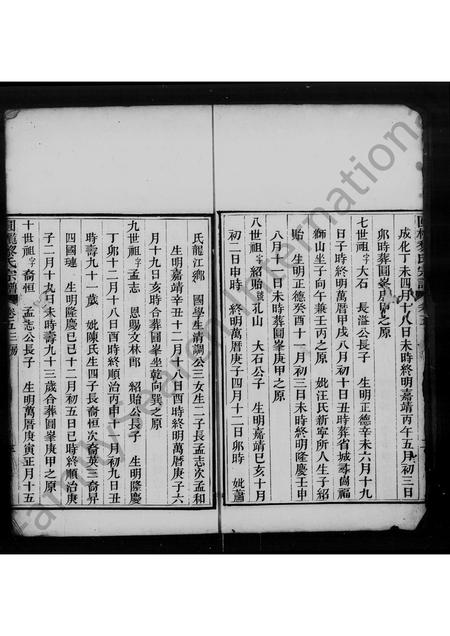 成化丁未四月十八日未時終明嘉靖丙午五月初三日
卯時葬圓峯庚甲之原
七世祖字大石 長溢公長子 生明正德辛未六月十九
日子時終明萬曆甲戌八月初十日丑時葬省城尋嶺福
獅山坐子向午兼壬丙之原 妣汪氏新寧所人生子紹
貽 生明正德癸酉十一月初三日未時終明隆慶壬申
八月十一日未時葬圓峯庚甲之原
八世祖字紹貽號孔山 大石公子 生明嘉靖己亥十月
初二日申時 終明萬曆庚子四月十二日卯時 妣蕭
氏龍江鄉 國學生清潤公三女生二子長孟志次孟和
生明嘉靖辛丑十二月十八日酉時終明萬曆庚子六
月十九日亥時合葬圓峯坐乾向巽之原
九世祖字孟志 恩賜文林郎 紹貽公長子 生明隆慶
丁卯十二月十八日酉時終順治丙申十一月初九日丑
時壽九十一歲 妣陳氏生四子長裔恒次裔英三裔昇
四國璉 生明隆慶己巳十二月初五日巳時終順治庚
子二月十九日未時壽九十三歲合葬圓峯庚甲之原
十世祖字裔恒 孟志公長子 生明萬曆庚寅正月十五
黎氏宗譜 卷五三房
FamilySearch International